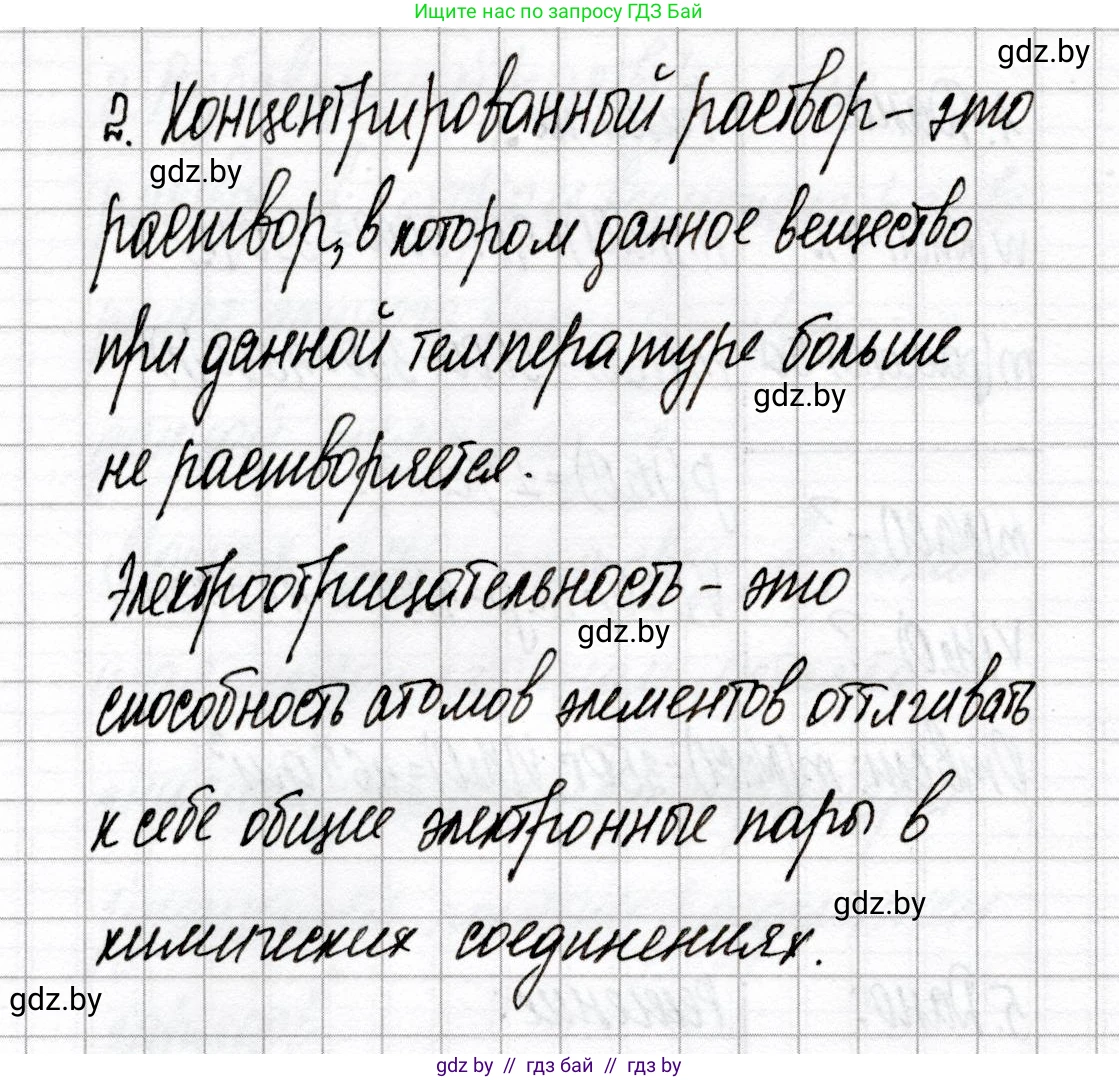 Ищите нас по запросу ГДЗ Бай
gdz.by
2. Концентрированный раствор – это
gdz.by
раствор, в котором данное вещество
при данной температуре больше
gdz.by
не растворяется.
Электроотрицательность – это
gdz.by
способность атомов элементов оттягивать
к себе общие электронные пары в
gdz.by
химических соединениях.
gdz.by
gdz by // гдз бай // гдз by